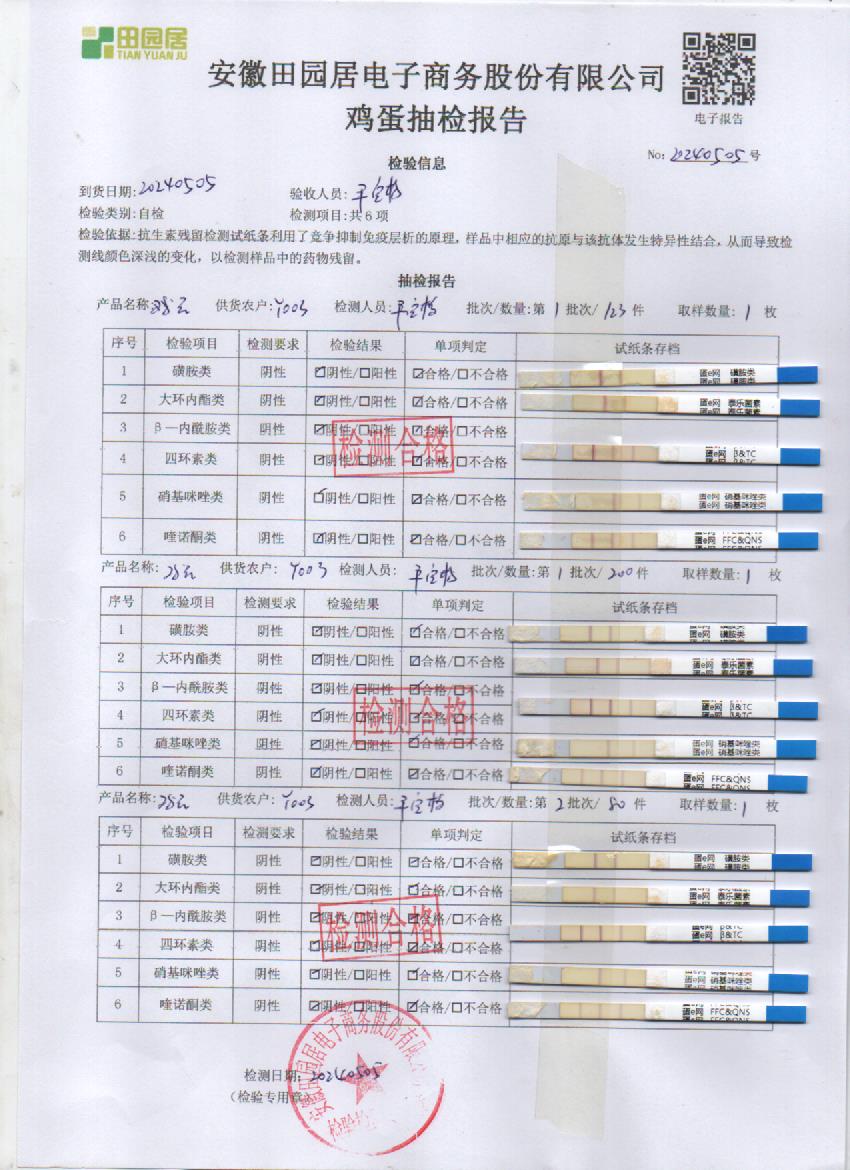 田园居
TIAN YUAN JU
安徽田园居电子商务股份有限公司
鸡蛋抽检报告
电子报告
No: 20240505号
检验信息
到货日期: 20240505 验收人员:
检验类别: 自检 检测项目: 共6项
检验依据: 抗生素残留检测试纸条利用了竞争抑制免疫层析的原理，样品中相应的抗原与该抗体发生特异性结合，从而导致检
测线颜色深浅的变化，以检测样品中的药物残留。
抽检报告
产品名称: 供货农户: Y003 检测人员: 批次/数量: 第1批次/123件 取样数量: 1枚
序号 检验项目 检测要求 检验结果 单项判定 试纸条存档
1 磺胺类 阴性 ☑阴性/☐阳性 ☑合格/☐不合格 蛋e网 磺胺类
2 大环内酯类 阴性 ☑阴性/☐阳性 ☑合格/☐不合格 蛋e网 泰乐菌素
3 β—内酰胺类 阴性 ☑阴性/☐阳性 ☑合格/☐不合格
4 四环素类 阴性 ☑阴性/☐阳性 ☑合格/☐不合格 蛋e网 β&TC
检测合格
5 硝基咪唑类 阴性 ☑阴性/☐阳性 ☑合格/☐不合格 蛋e网 硝基咪唑类
6 喹诺酮类 阴性 ☑阴性/☐阳性 ☑合格/☐不合格 蛋e网 FFC&QNS
产品名称: 供货农户: Y003 检测人员: 批次/数量: 第1批次/200件 取样数量: 1枚
序号 检验项目 检测要求 检验结果 单项判定 试纸条存档
1 磺胺类 阴性 ☑阴性/☐阳性 ☑合格/☐不合格 蛋e网 磺胺类
2 大环内酯类 阴性 ☑阴性/☐阳性 ☑合格/☐不合格 蛋e网 泰乐菌素
3 β—内酰胺类 阴性 ☑阴性/☐阳性 ☑合格/☐不合格
4 四环素类 阴性 ☑阴性/☐阳性 ☑合格/☐不合格 蛋e网 β&TC
检测合格
5 硝基咪唑类 阴性 ☑阴性/☐阳性 ☑合格/☐不合格 蛋e网 硝基咪唑类
6 喹诺酮类 阴性 ☑阴性/☐阳性 ☑合格/☐不合格 蛋e网 FFC&QNS
产品名称: 供货农户: Y003 检测人员: 批次/数量: 第2批次/80件 取样数量: 1枚
序号 检验项目 检测要求 检验结果 单项判定 试纸条存档
1 磺胺类 阴性 ☑阴性/☐阳性 ☑合格/☐不合格 蛋e网 磺胺类
2 大环内酯类 阴性 ☑阴性/☐阳性 ☑合格/☐不合格 蛋e网 泰乐菌素
3 β—内酰胺类 阴性 ☑阴性/☐阳性 ☑合格/☐不合格
4 四环素类 阴性 ☑阴性/☐阳性 ☑合格/☐不合格 蛋e网 β&TC
检测合格
5 硝基咪唑类 阴性 ☑阴性/☐阳性 ☑合格/☐不合格 蛋e网 硝基咪唑类
6 喹诺酮类 阴性 ☑阴性/☐阳性 ☑合格/☐不合格 蛋e网 FFC&QNS
安徽田园居电子商务股份有限
检测日期: 20240505
（检验专用章）